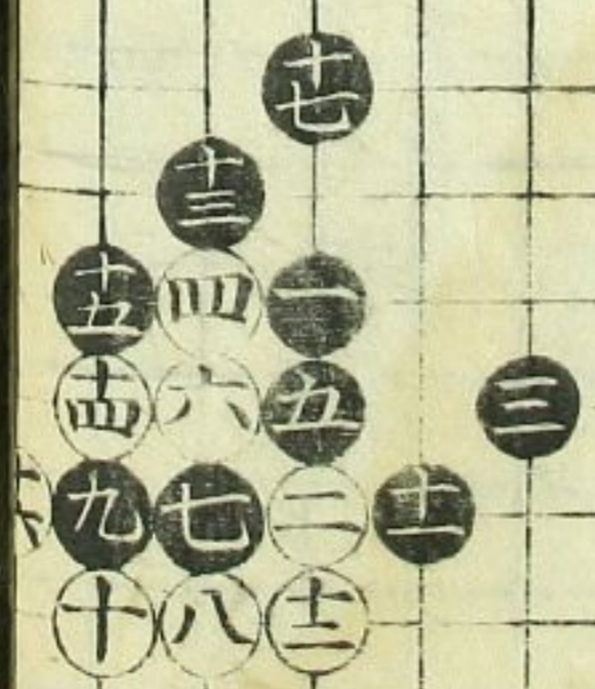 十七
十三
十五 四 一
十四 六 五 三
九 七 二 十一
十 八 十二